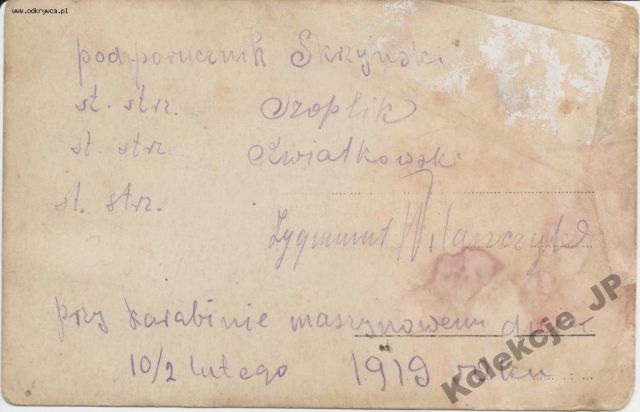 www.odkrywca.pl
podporucznik Skrzyński
st. strz. Szoplik
st. strz Kwiatkowski
st. strz.
Zygmunt Witanczyk
przy karabinie maszynowem dnia
10/2 lutego 1919 roku
Kolekcje_JP